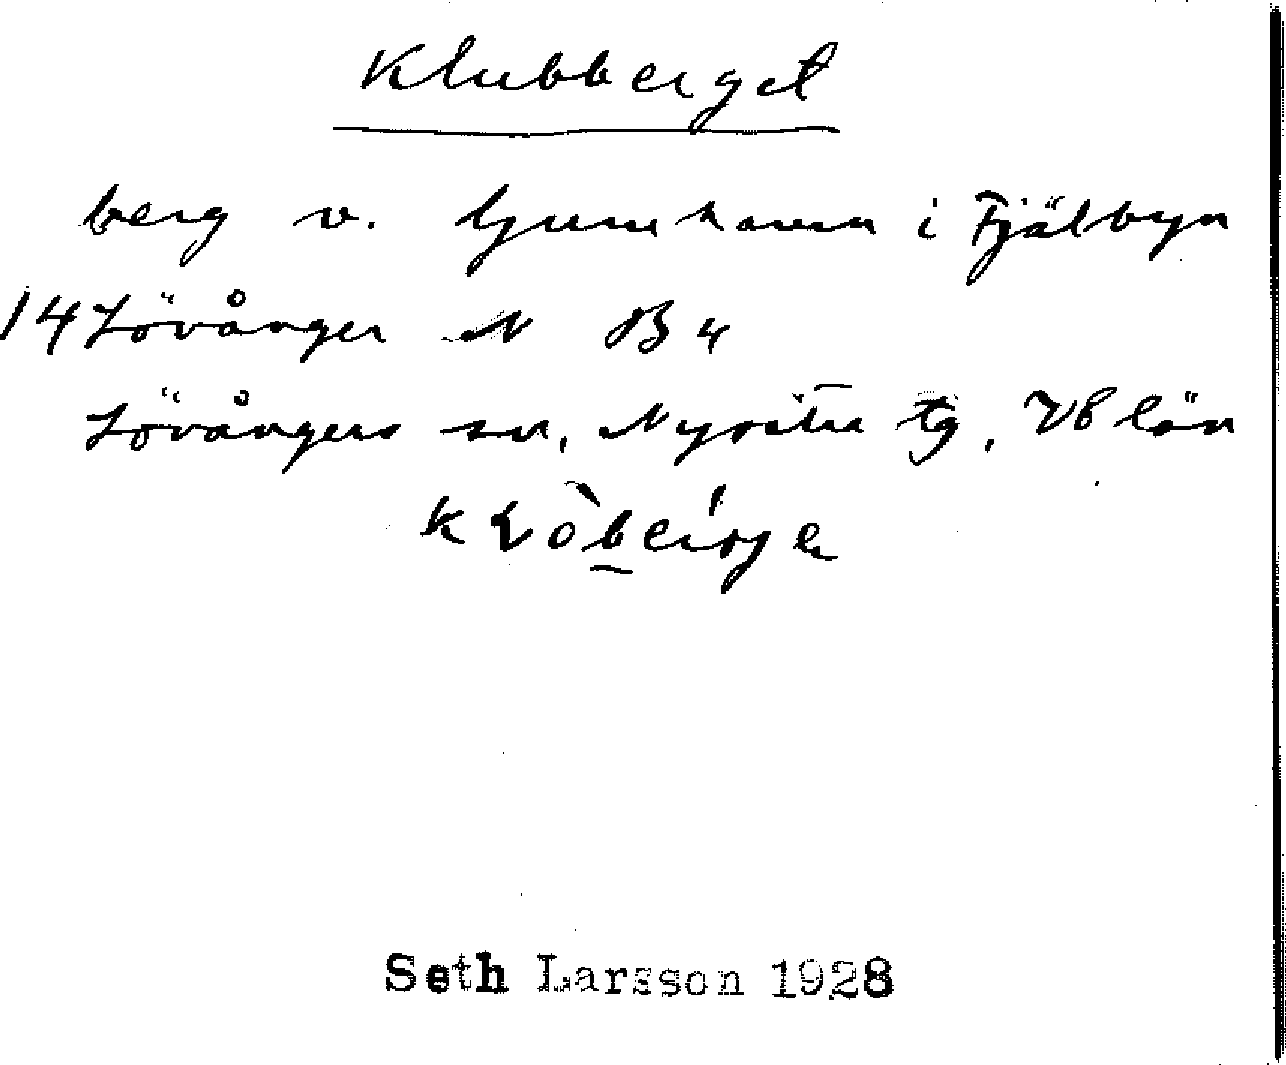 Klubberget
berg v. Gumhamn i Fjälbyn
14 Lövånger N B 4
Lövångers sn, Nysätra tg, Vb län
Seth Larsson 1928